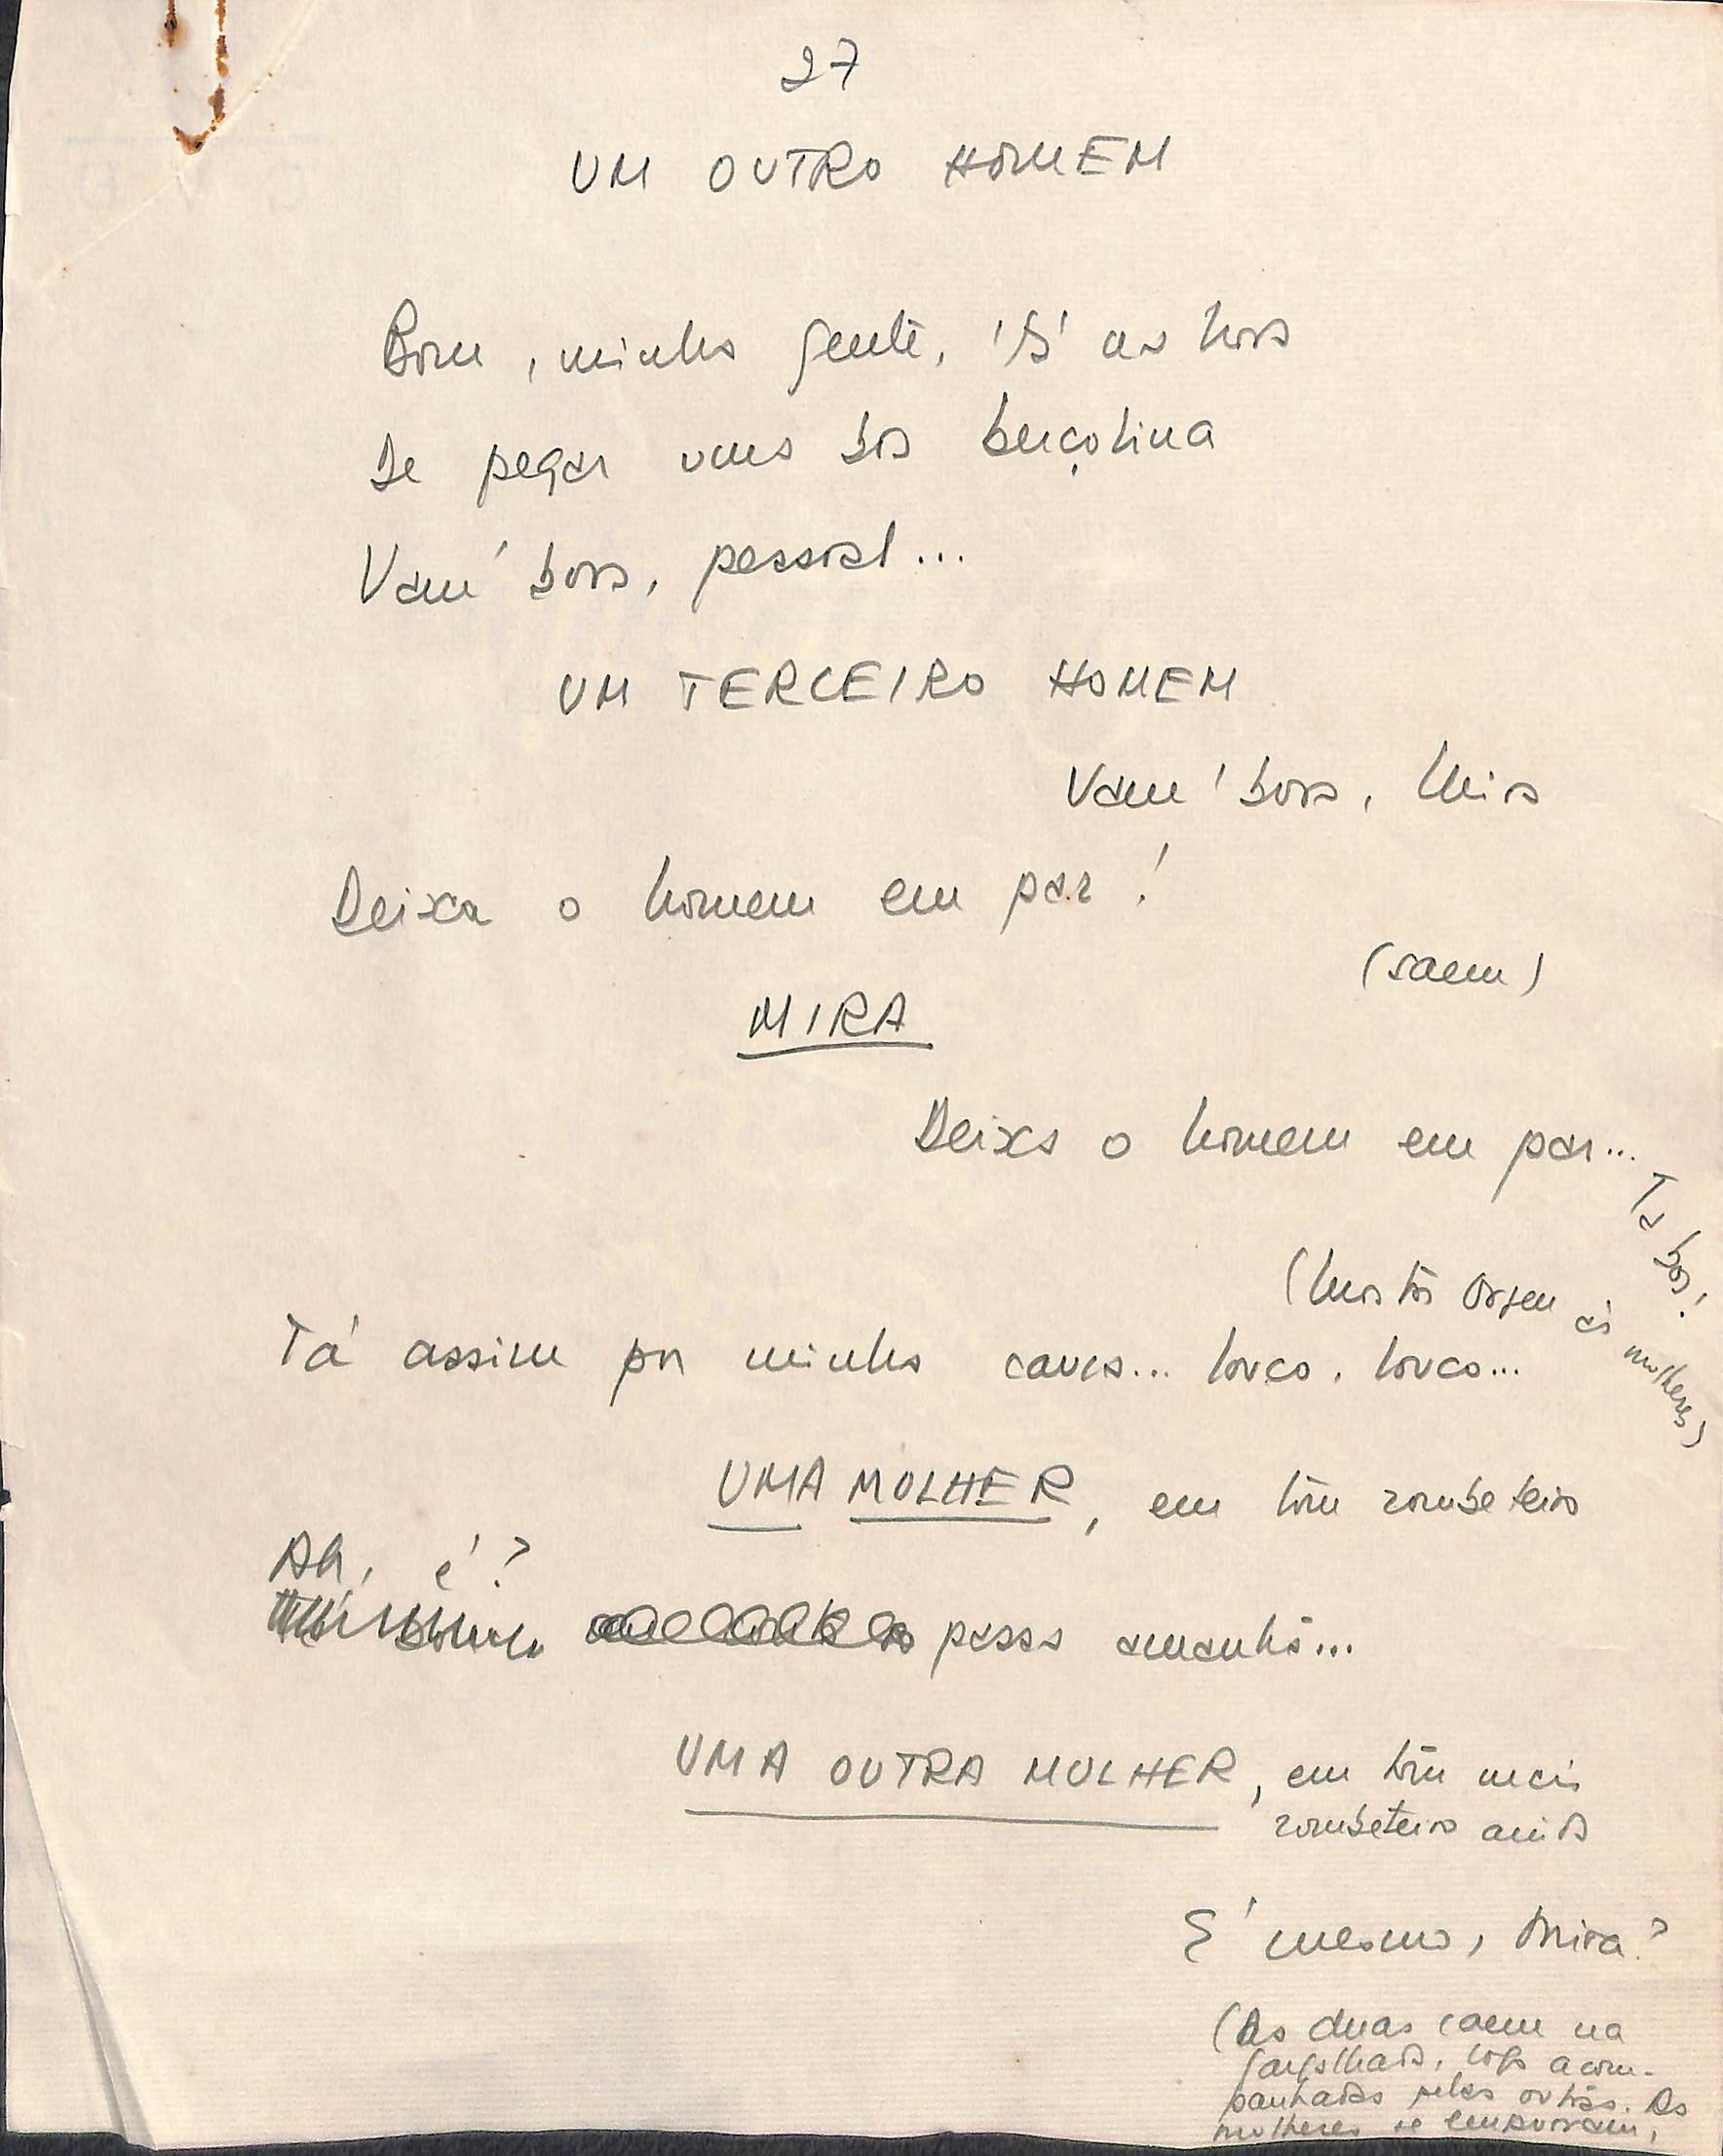 27
UM OUTRO HOMEM
Bom, minha gente, 'tá na hora
De pegar uma boa
Vam' bora, pessoal...
UM TERCEIRO HOMEM
Vam' bora, Mira
Deixa o homem em paz!
(saem)
MIRA
Deixa o homem em paz...
Tá boa!
(Mostra Orfeu às mulheres)
Tá assim por minha causa... louco, louco...
UMA MULHER, em tom zombeteiro
Ah, é?
passa amanhã...
UMA OUTRA MULHER, em tom mais
zombeteiro ainda
É mesmo, Mira?
(As duas caem na
gargalhada, logo acom-
panhadas pelas outras. As
mulheres se empurram,